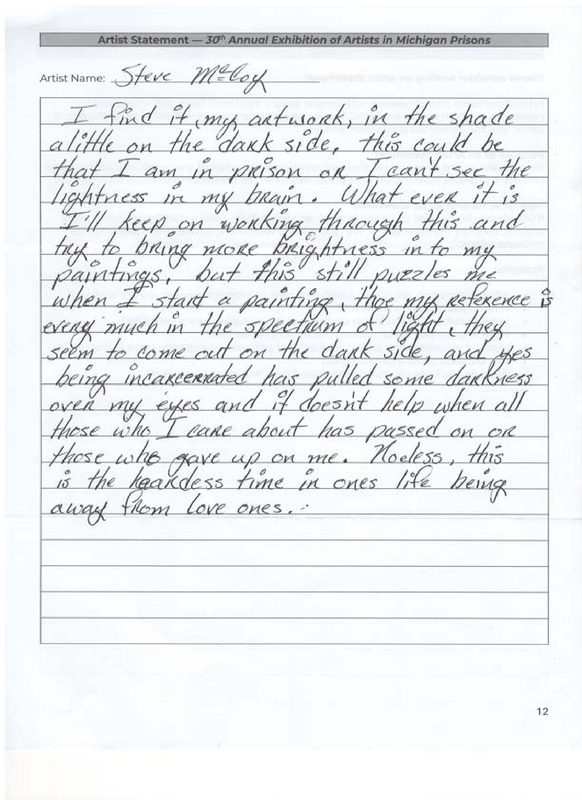 Artist Statement — 30th Annual Exhibition of Artists in Michigan Prisons
Artist Name: Steve McCoy
I find it, my artwork, in the shade
alittle on the dark side, this could be
that I am in prison or I can't see the
lightness in my brain. What ever it is
I'll keep on working through this and
try to bring more brightness in to my
paintings, but this still puzzles me
when I start a painting, thoe my reference is
every much in the spectrum of light, they
seem to come out on the dark side, and yes
being incarcerrated has pulled some darkness
over my eyes and it doesn't help when all
those who I care about has passed on or
those who gave up on me. Noeless, this
is the heardess time in ones life being
away from love ones.
12